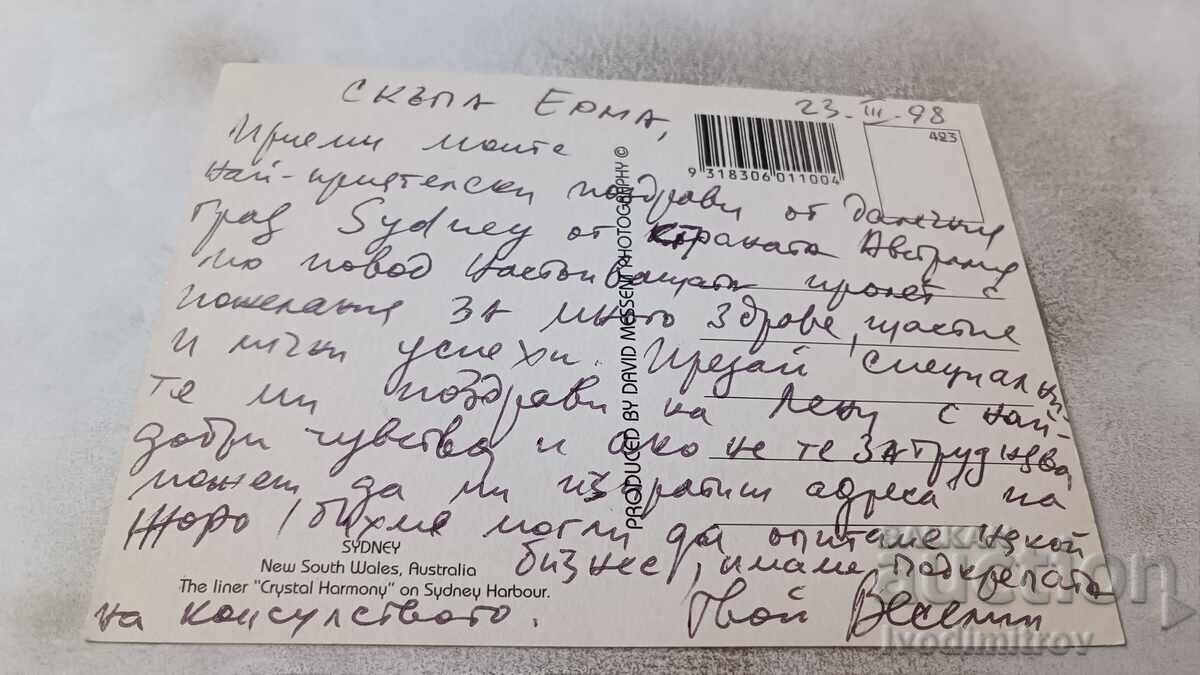 СКЪПА ЕРМА,
23. III. 98
Приеми моите
423
9 318306 011004
най-приятелски поздрави от далечния
град Sydney от страната Австралия
по повод настъпващата пролет с
пожелания за много здраве, щастие
и лични успехи. Предай специални
те ми поздрави на Лени с най-
добри чувства и ако не те затруднява
можеш да ми изпратиш адреса на
Жоро, бихме могли да опитаме някой
бизнес, имаме подкрепата
на консулството.
Твой Веселин
PRODUCED BY DAVID MESSENT PHOTOGRAPHY ©
SYDNEY
New South Wales, Australia
The liner "Crystal Harmony" on Sydney Harbour.
БАЛКАН
auction
ivodimitrov